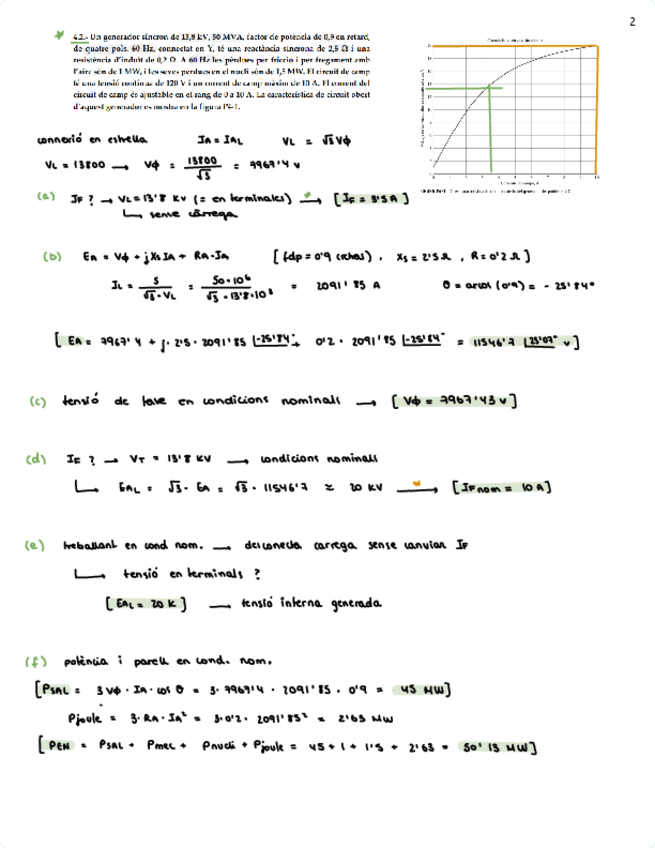 2
4.2.- Un generador síncron de 13,8 kV, 50 MVA, factor de potència de 0,9 en retard,
de quatre pols, 60 Hz, connectat en Y, té una reactància síncrona de 2,5 Ω i una
resistència d'induït de 0,2 Ω. A 60 Hz les pèrdues per fricció i per fregament amb
l'aire són de 1 MW, i les seves pèrdues en el nucli són de 1,5 MW. El circuit de camp
té una tensió contínua de 120 V i un corrent de camp màxim de 10 A. El corrent del
circuit de camp és ajustable en el rang de 0 a 10 A. La característica de circuit obert
d'aquest generador es mostra en la figura P4-1.
connexió en estrella IA = IAL VL = √3 Vϕ
VL = 13800 → Vϕ = 13800/√3 = 7967'4 V
(a) IF ? → VL = 13'8 KV (= en terminales) → [IF = 3'5 A]
↳ sense càrrega
(b) EA = Vϕ + jXs IA + RA·IA [fdp = 0'9 , Xs = 2'5 Ω , R = 0'2 Ω]
IL = S/√3·VL = 50·10⁶/√3·13'8·10³ = 2091'85 A θ = arcos (0'9) = - 25'84°
[EA = 7967'4 + j·2'5·2091'85 |-25'84° + 0'2·2091'85 |-25'84° = 11546'7 |23'07° V]
(c) tensió de fase en condicions nominals → [Vϕ = 7967'43 V]
(d) IF ? → VT = 13'8 KV → condicions nominals
↳ EAL = √3·EA = √3·11546'7 ≈ 20 KV → [IFnom = 10 A]
(e) treballant en cond nom. → desconecta carrega sense canviar IF
↳ tensió en terminals ?
[EAL = 20 K] → tensió interna generada
(f) potència i parell en cond. nom.
[PSAL = 3Vϕ·IA·cos θ = 3·7967'4·2091'85·0'9 = 45 MW]
Pjoule = 3·RA·IA² = 3·0'2·2091'85² = 2'63 MW
[PEN = PSAL + Pmec + Pnucli + Pjoule = 45 + 1 + 1'5 + 2'63 = 50'13 MW]